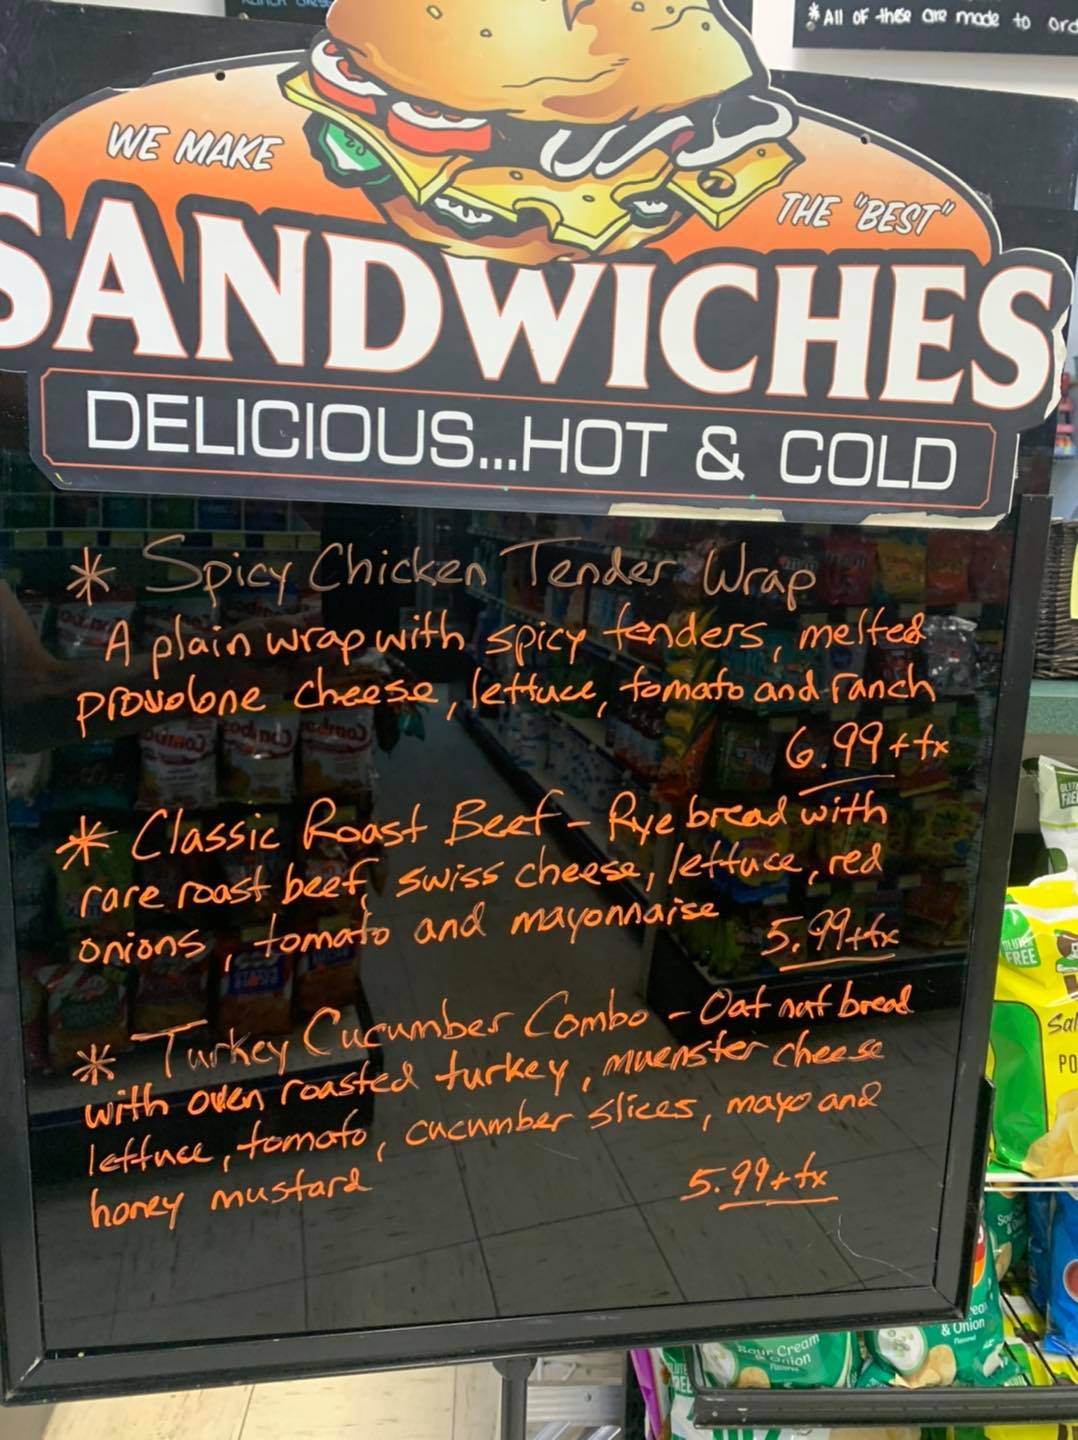 *All of these are made to
WE MAKE
THE "BEST"
SANDWICHES
DELICIOUS...HOT & COLD
* Spicy Chicken Tender Wrap
A plain wrap with spicy tenders, melted
provolone cheese, lettuce, tomato and ranch
6.99+tx
* Classic Roast Beef - Rye bread with
rare roast beef, swiss cheese, lettuce, red
onions, tomato and mayonnaise
5.99+tx
* Turkey Cucumber Combo - Oat nut bread
with oven roasted turkey, muenster cheese
lettuce, tomato, cucumber slices, mayo and
honey mustard
5.99+tx
GLUTEN
FREE
Sour Cream
& Onion
Flavored
& Onion
Flavored